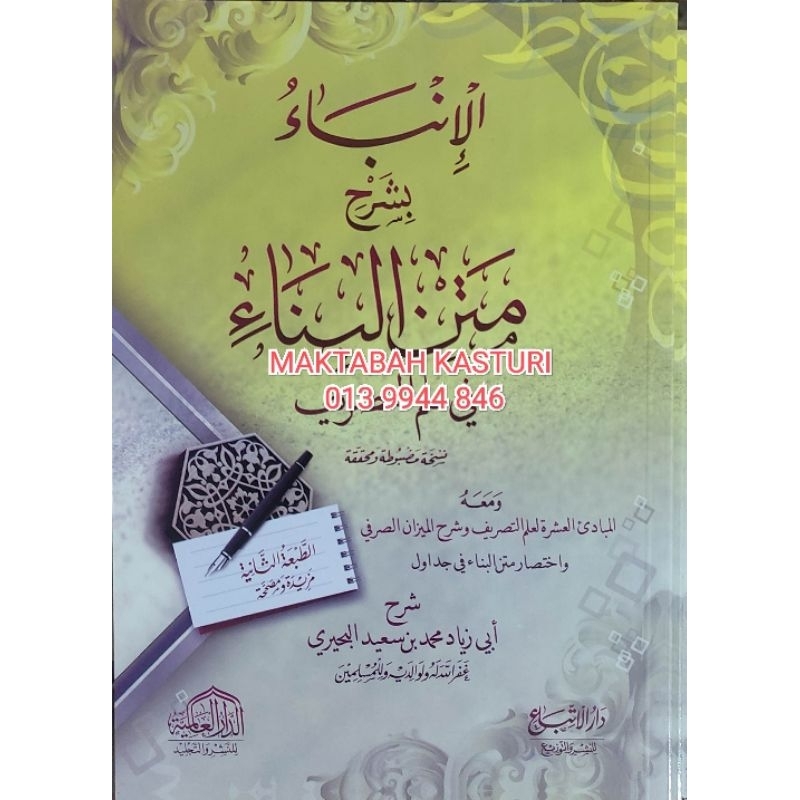 الإِنْبَاءُ
بِشَرْحِ
مَتْنِ البِنَاءِ
MAKTABAH KASTURI
في علم التصريف
013 9944 846
نسخة مضبوطة ومحققة
وَمَعَهُ
المبادئ العشرة لعلم التصريف وشرح الميزان الصرفي
واختصار متن البناء في جداول
الطَّبْعَةُ الثَّانِيَة
مَزِيدَة وَمُصَحَّحَة
شرح
أبي زياد محمد بن سعيد البحيري
غَفَرَ اللهُ لَهُ وَلِوَالِدَيْهِ وَلِلْمُسْلِمِيْنَ
الدار العالمية
للنشر والتجليد
دَارُ الاتِّبَاعِ
للنشر والتوزيع